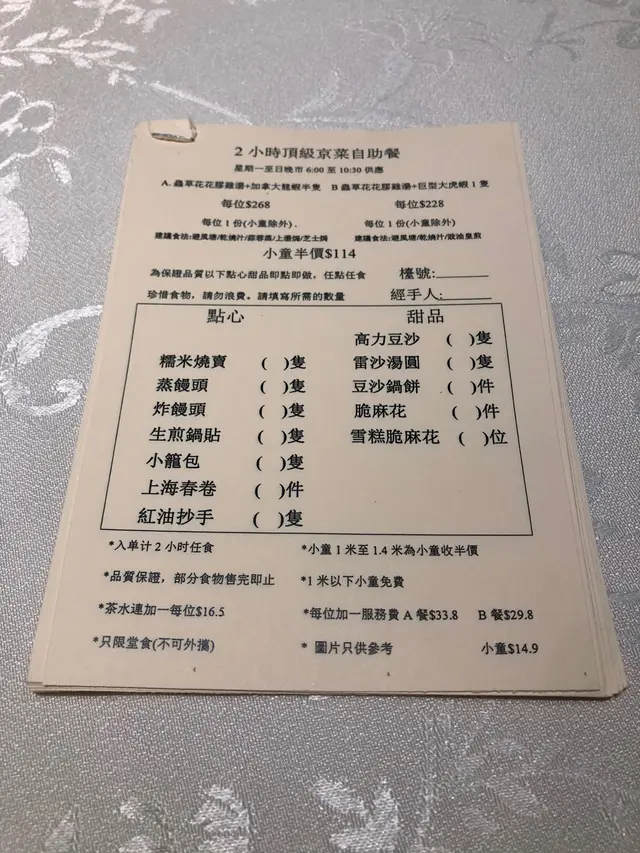 2 小時頂級京菜自助餐
星期一至日晚市 6:00 至 10:30 供應
A. 蟲草花花膠雞湯+加拿大龍蝦半隻 B 蟲草花花膠雞湯+巨型大虎蝦 1 隻
每位$268 每位$228
每位 1 份(小童除外). 每位 1 份(小童除外)
建議食法:避風塘/乾燒汁/蒜蓉蒸/上湯焗/芝士焗 建議食法:避風塘/乾燒汁/豉油皇煎
小童半價$114
為保證品質以下點心甜品即點即做，任點任食 檯號:______
珍惜食物，請勿浪費。請填寫所需的數量 經手人:______
點心 甜品
高力豆沙 ( )隻
糯米燒賣 ( )隻 雷沙湯圓 ( )隻
蒸饅頭 ( )隻 豆沙鍋餅 ( )件
炸饅頭 ( )隻 脆麻花 ( )件
生煎鍋貼 ( )隻 雪糕脆麻花 ( )位
小籠包 ( )隻
上海春卷 ( )件
紅油抄手 ( )隻
*入单计 2 小时任食 *小童 1 米至 1.4 米為小童收半價
*品質保證，部分食物售完即止 *1 米以下小童免費
*茶水連加一每位$16.5 *每位加一服務費 A 餐$33.8 B 餐$29.8
*只限堂食(不可外攜) * 圖片只供參考 小童$14.9